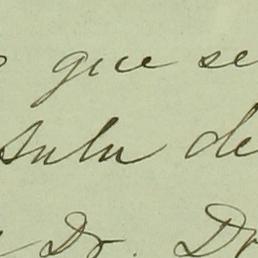 que se
sulu de
Dr. Dr